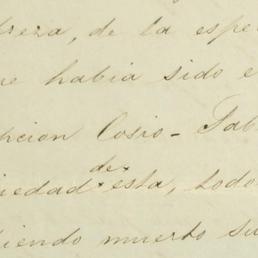 breza, de la espe
e habia sido e
pcion Cosio - Tab
de
iedad esta, todo
diendo muerto su